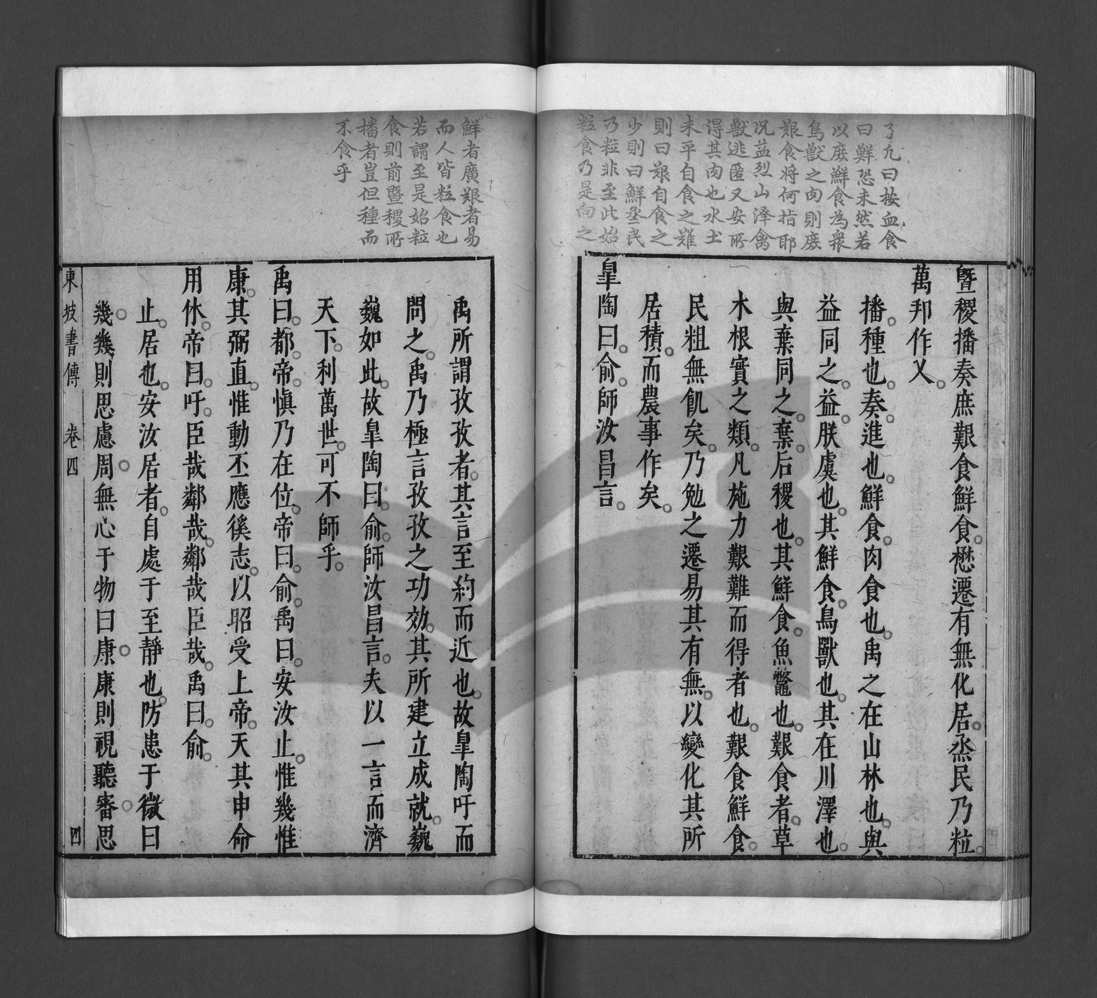 了凡曰按血食
曰鮮恐未然若
以庶鮮食為衆
鳥獸之肉則庶
艱食將何指耶
况益烈山澤禽
獸逃匿又安所
得其肉也水土
未平自食之難
則曰艱自食之
少則曰鮮烝民
乃粒非至此始
粒食乃是向之
暨稷播奏庶艱食鮮食懋遷有無化居烝民乃粒
萬邦作乂
播種也奏進也鮮食肉食也禹之在山林也與
益同之益朕虞也其鮮食鳥獸也其在川澤也
與棄同之棄后稷也其鮮食魚鼈也艱食者草
木根實之類凡施力艱難而得者也艱食鮮食
民粗無飢矣乃勉之遷易其有無以變化其所
居積而農事作矣
臯陶曰俞師汝昌言
鮮者廣艱者易
而人皆粒食也
若謂至是始粒
食則前暨稷所
播者豈但種而
不食乎
禹所謂孜孜者其言至約而近也故臯陶吁而
問之禹乃極言孜孜之功效其所建立成就巍
巍如此故臯陶曰俞師汝昌言夫以一言而濟
天下利萬世可不師乎
禹曰都帝愼乃在位帝曰俞禹曰安汝止惟幾惟
康其弼直惟動丕應徯志以昭受上帝天其申命
用休帝曰吁臣哉鄰哉鄰哉臣哉禹曰俞
止居也安汝居者自處于至靜也防患于微曰
幾幾則思慮周無心于物曰康康則視聽審思
東坡書傳 卷四 四